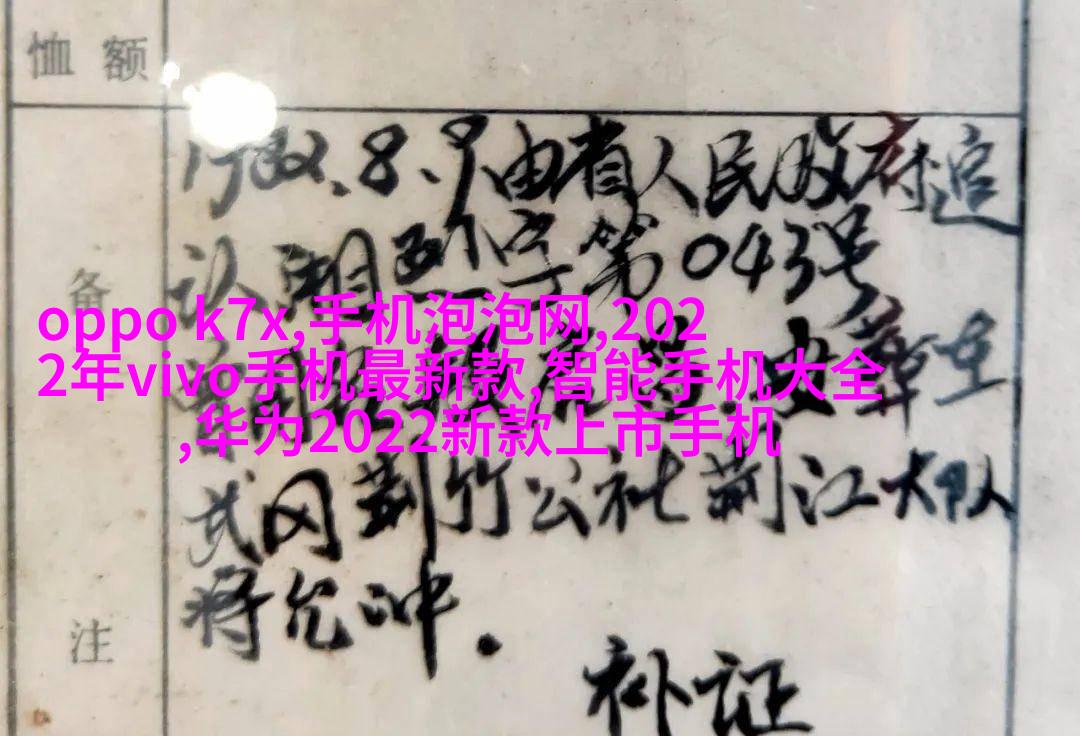 恤额
备
注
1982.8.9由省人民政府追
认,湘烈字第043号
oppo k7x,手机泡泡网,202
2年vivo手机最新款,智能手机大全
,华为2022新款上市手机
武冈荆竹公社荆江大队
蒋允冲.
补证